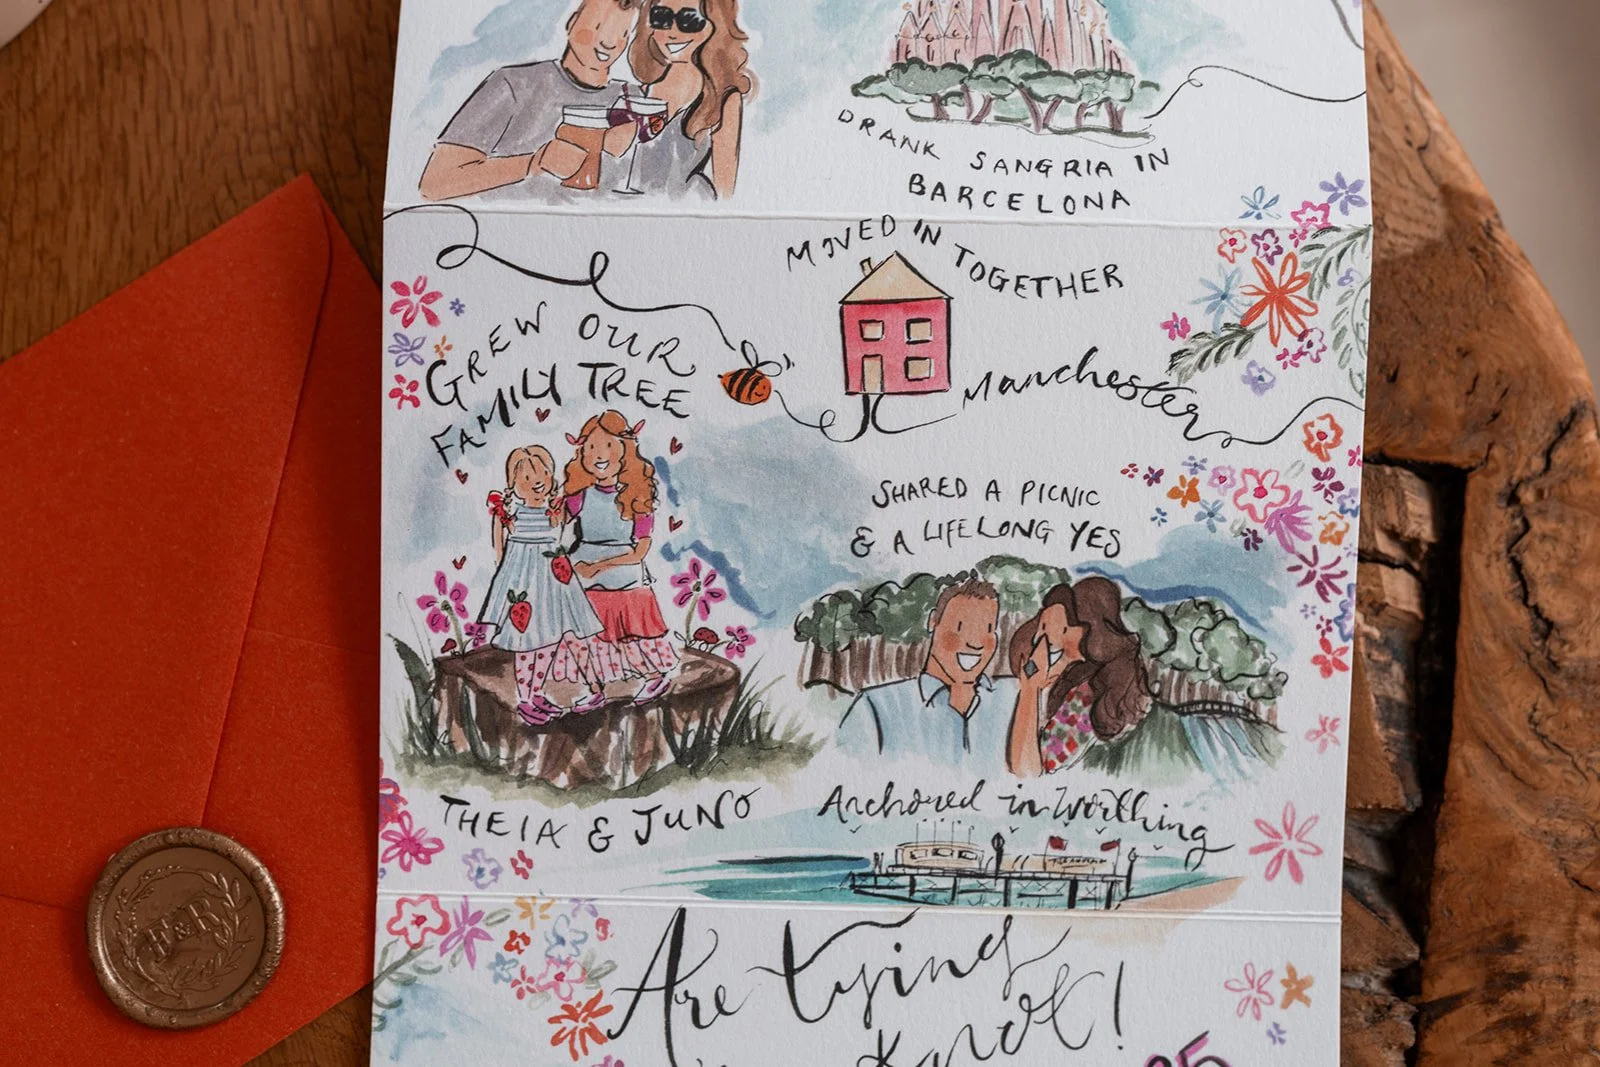 DRANK SANGRIA IN
BARCELONA
MOVED IN
TOGETHER
Manchester
GREW OUR
FAMILY TREE
THEIA & JUNO
SHARED A PICNIC
& A LIFELONG YES
Anchored in Worthing
Are tying
Knot!
25
F&R